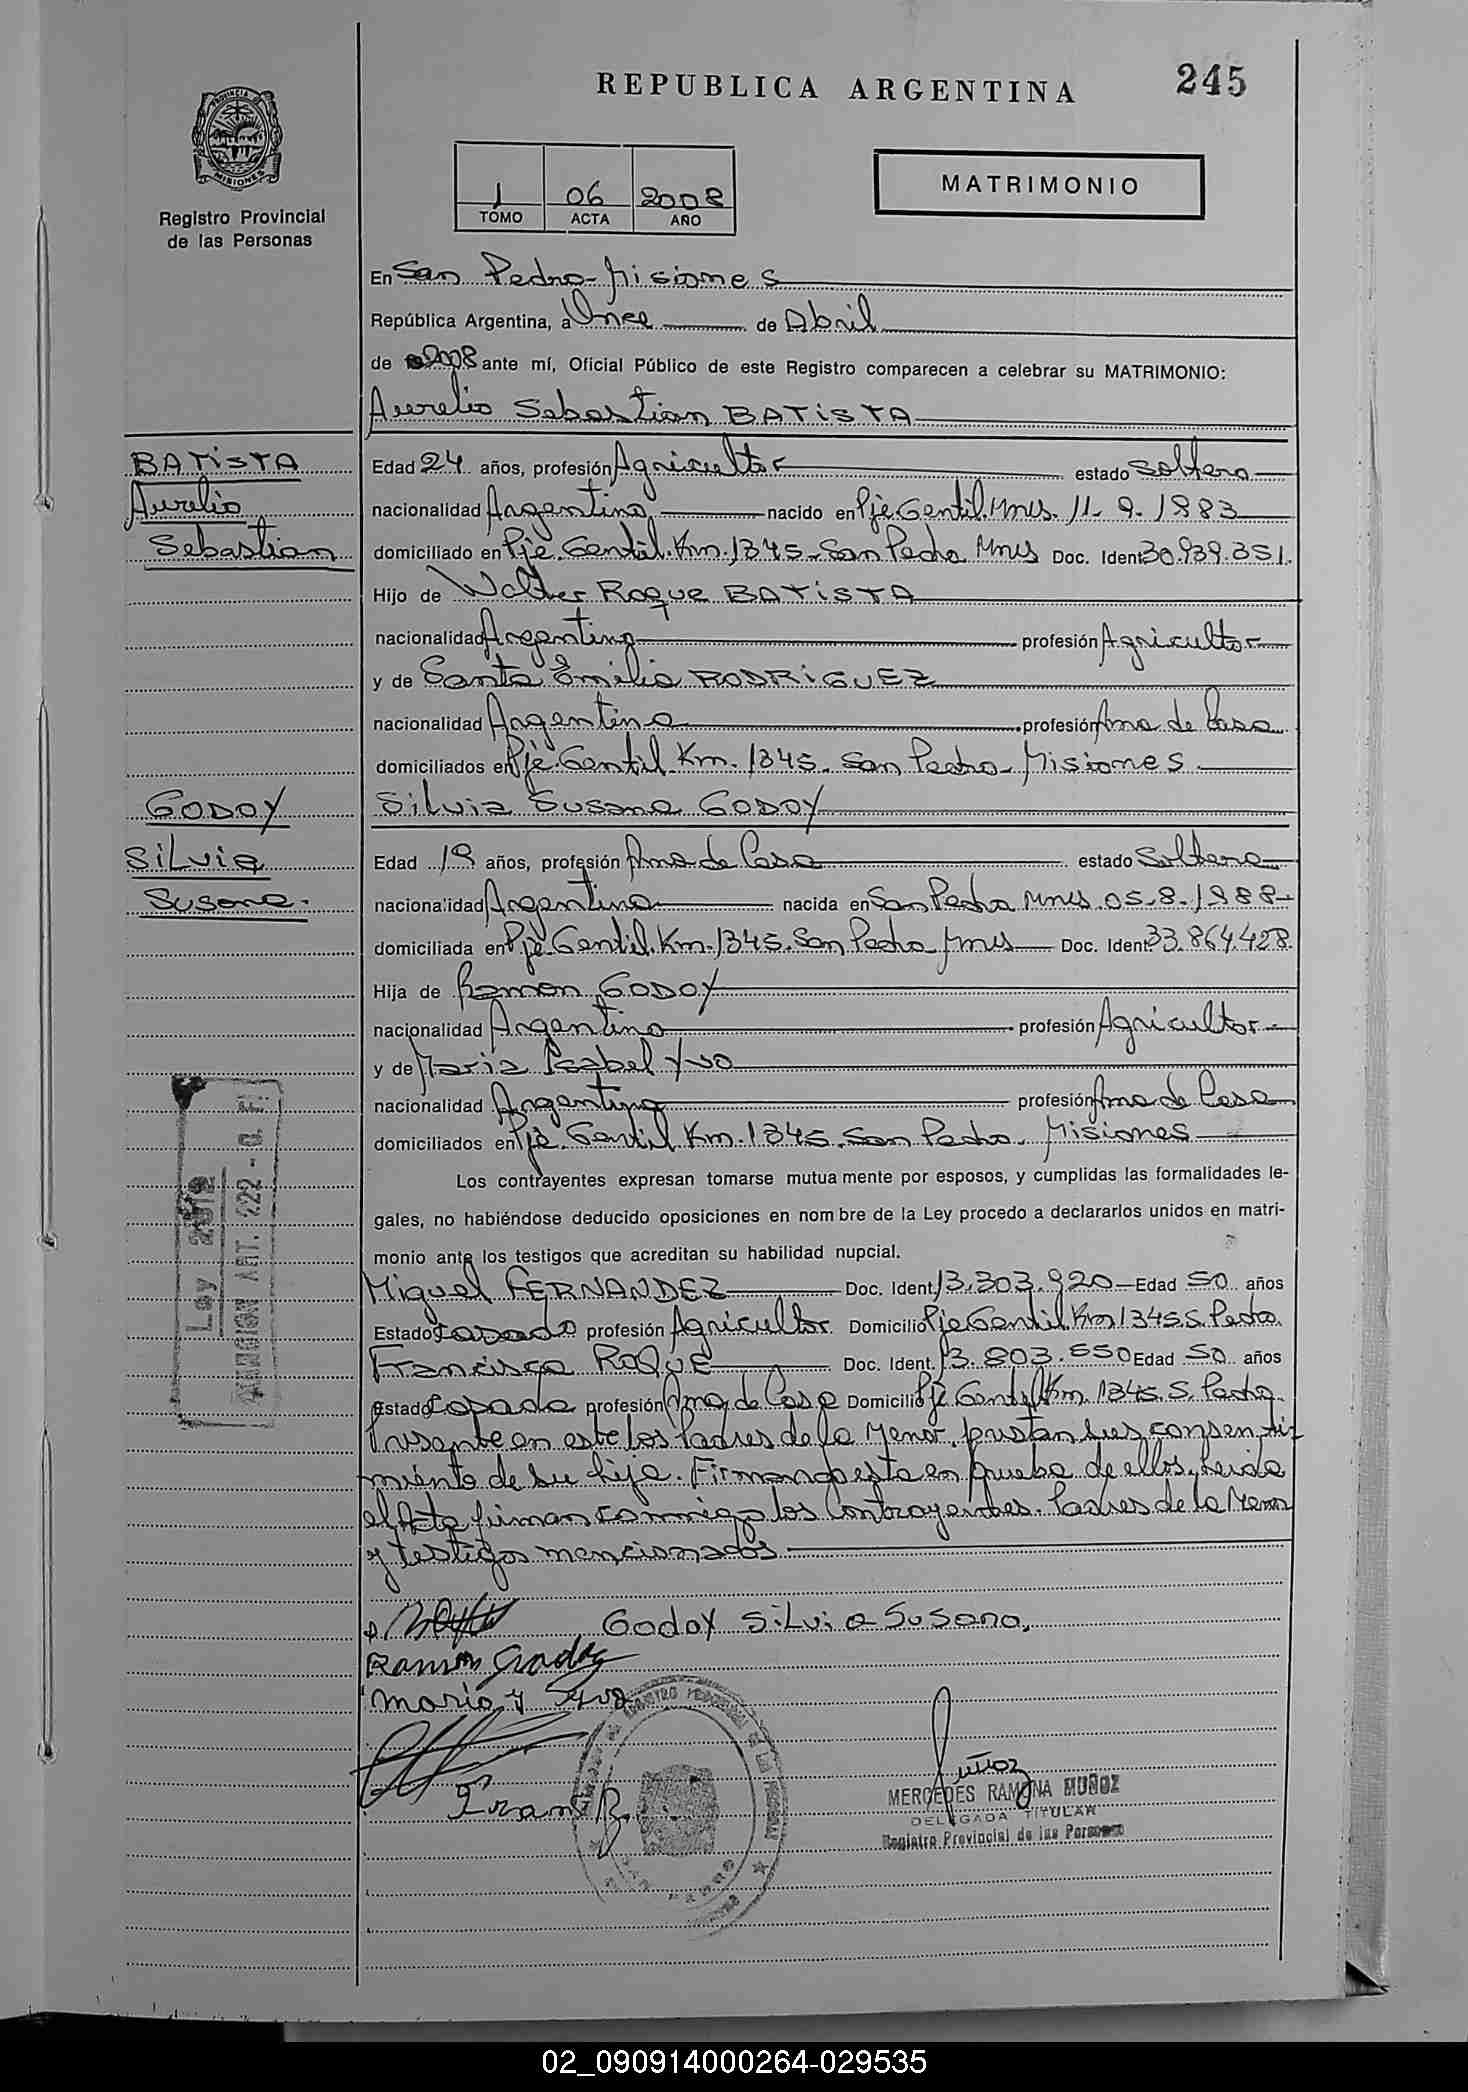 REPUBLICA ARGENTINA
245
PROVINCIA DE
MISIONES
Registro Provincial
de las Personas
1 06 2008
TOMO ACTA AÑO
MATRIMONIO
En San Pedro-Misiones
República Argentina, a Once de Abril
de 2008 ante mí, Oficial Público de este Registro comparecen a celebrar su MATRIMONIO:
Aurelio Sebastian BATISTA
BATISTA
Aurelio
Sebastian
Edad 24 años, profesión Agricultor estado Soltero
nacionalidad Argentino nacido en Pje. Gentil. Mnes. 11-9-1983
domiciliado en Pje. Gentil. Km. 1345- San Pedro Mnes Doc. Ident. 30.939.351.
Hijo de Walter Roque BATISTA
nacionalidad Argentino profesión Agricultor
y de Santa Emilia RODRIGUEZ
nacionalidad Argentina profesión Ama de Casa
domiciliados en Pje. Gentil. Km. 1345. San Pedro- Misiones
GODOY
Silvia
Susana.
Silvia Susana GODOY
Edad 19 años, profesión Ama de Casa estado Soltera
nacionalidad Argentina nacida en San Pedro Mnes. 05-8-1988-
domiciliada en Pje. Gentil. Km. 1345. San Pedro Mnes Doc. Ident. 33.864.428.
Hija de Ramon GODOY
nacionalidad Argentino profesión Agricultor
y de Maria Isabel Yvo
nacionalidad Argentina profesión Ama de Casa
domiciliados en Pje. Gentil Km. 1345. San Pedro. Misiones
Los contrayentes expresan tomarse mutuamente por esposos, y cumplidas las formalidades le-
gales, no habiéndose deducido oposiciones en nombre de la Ley procedo a declararlos unidos en matri-
monio ante los testigos que acreditan su habilidad nupcial.
Miguel FERNANDEZ Doc. Ident. 13.303.920 Edad 50 años
Estado Casado profesión Agricultor. Domicilio Pje Gentil Km 1345 S. Pedro.
Francisca ROQUE Doc. Ident. 13.803.550 Edad 50 años
Estado Casada profesión Ama de Casa Domicilio Pje Gentil Km. 1345. S. Pedro.
Presente en este los Padres de la Menor, prestan sus consenti-
miento de su hija. Firmando esta en prueba de ellos, leida
el Acta firman conmigo los Contrayentes. Padres de la Menor
y testigos mencionados
Ley
ART. 222 -
Godoy Silvia Susana,
Ramon Godoy
Maria Y
Fran R.
Muñoz
MERCEDES RAMONA MUÑOZ
DELEGADA TITULAR
Registro Provincial de las Personas
02_090914000264-029535